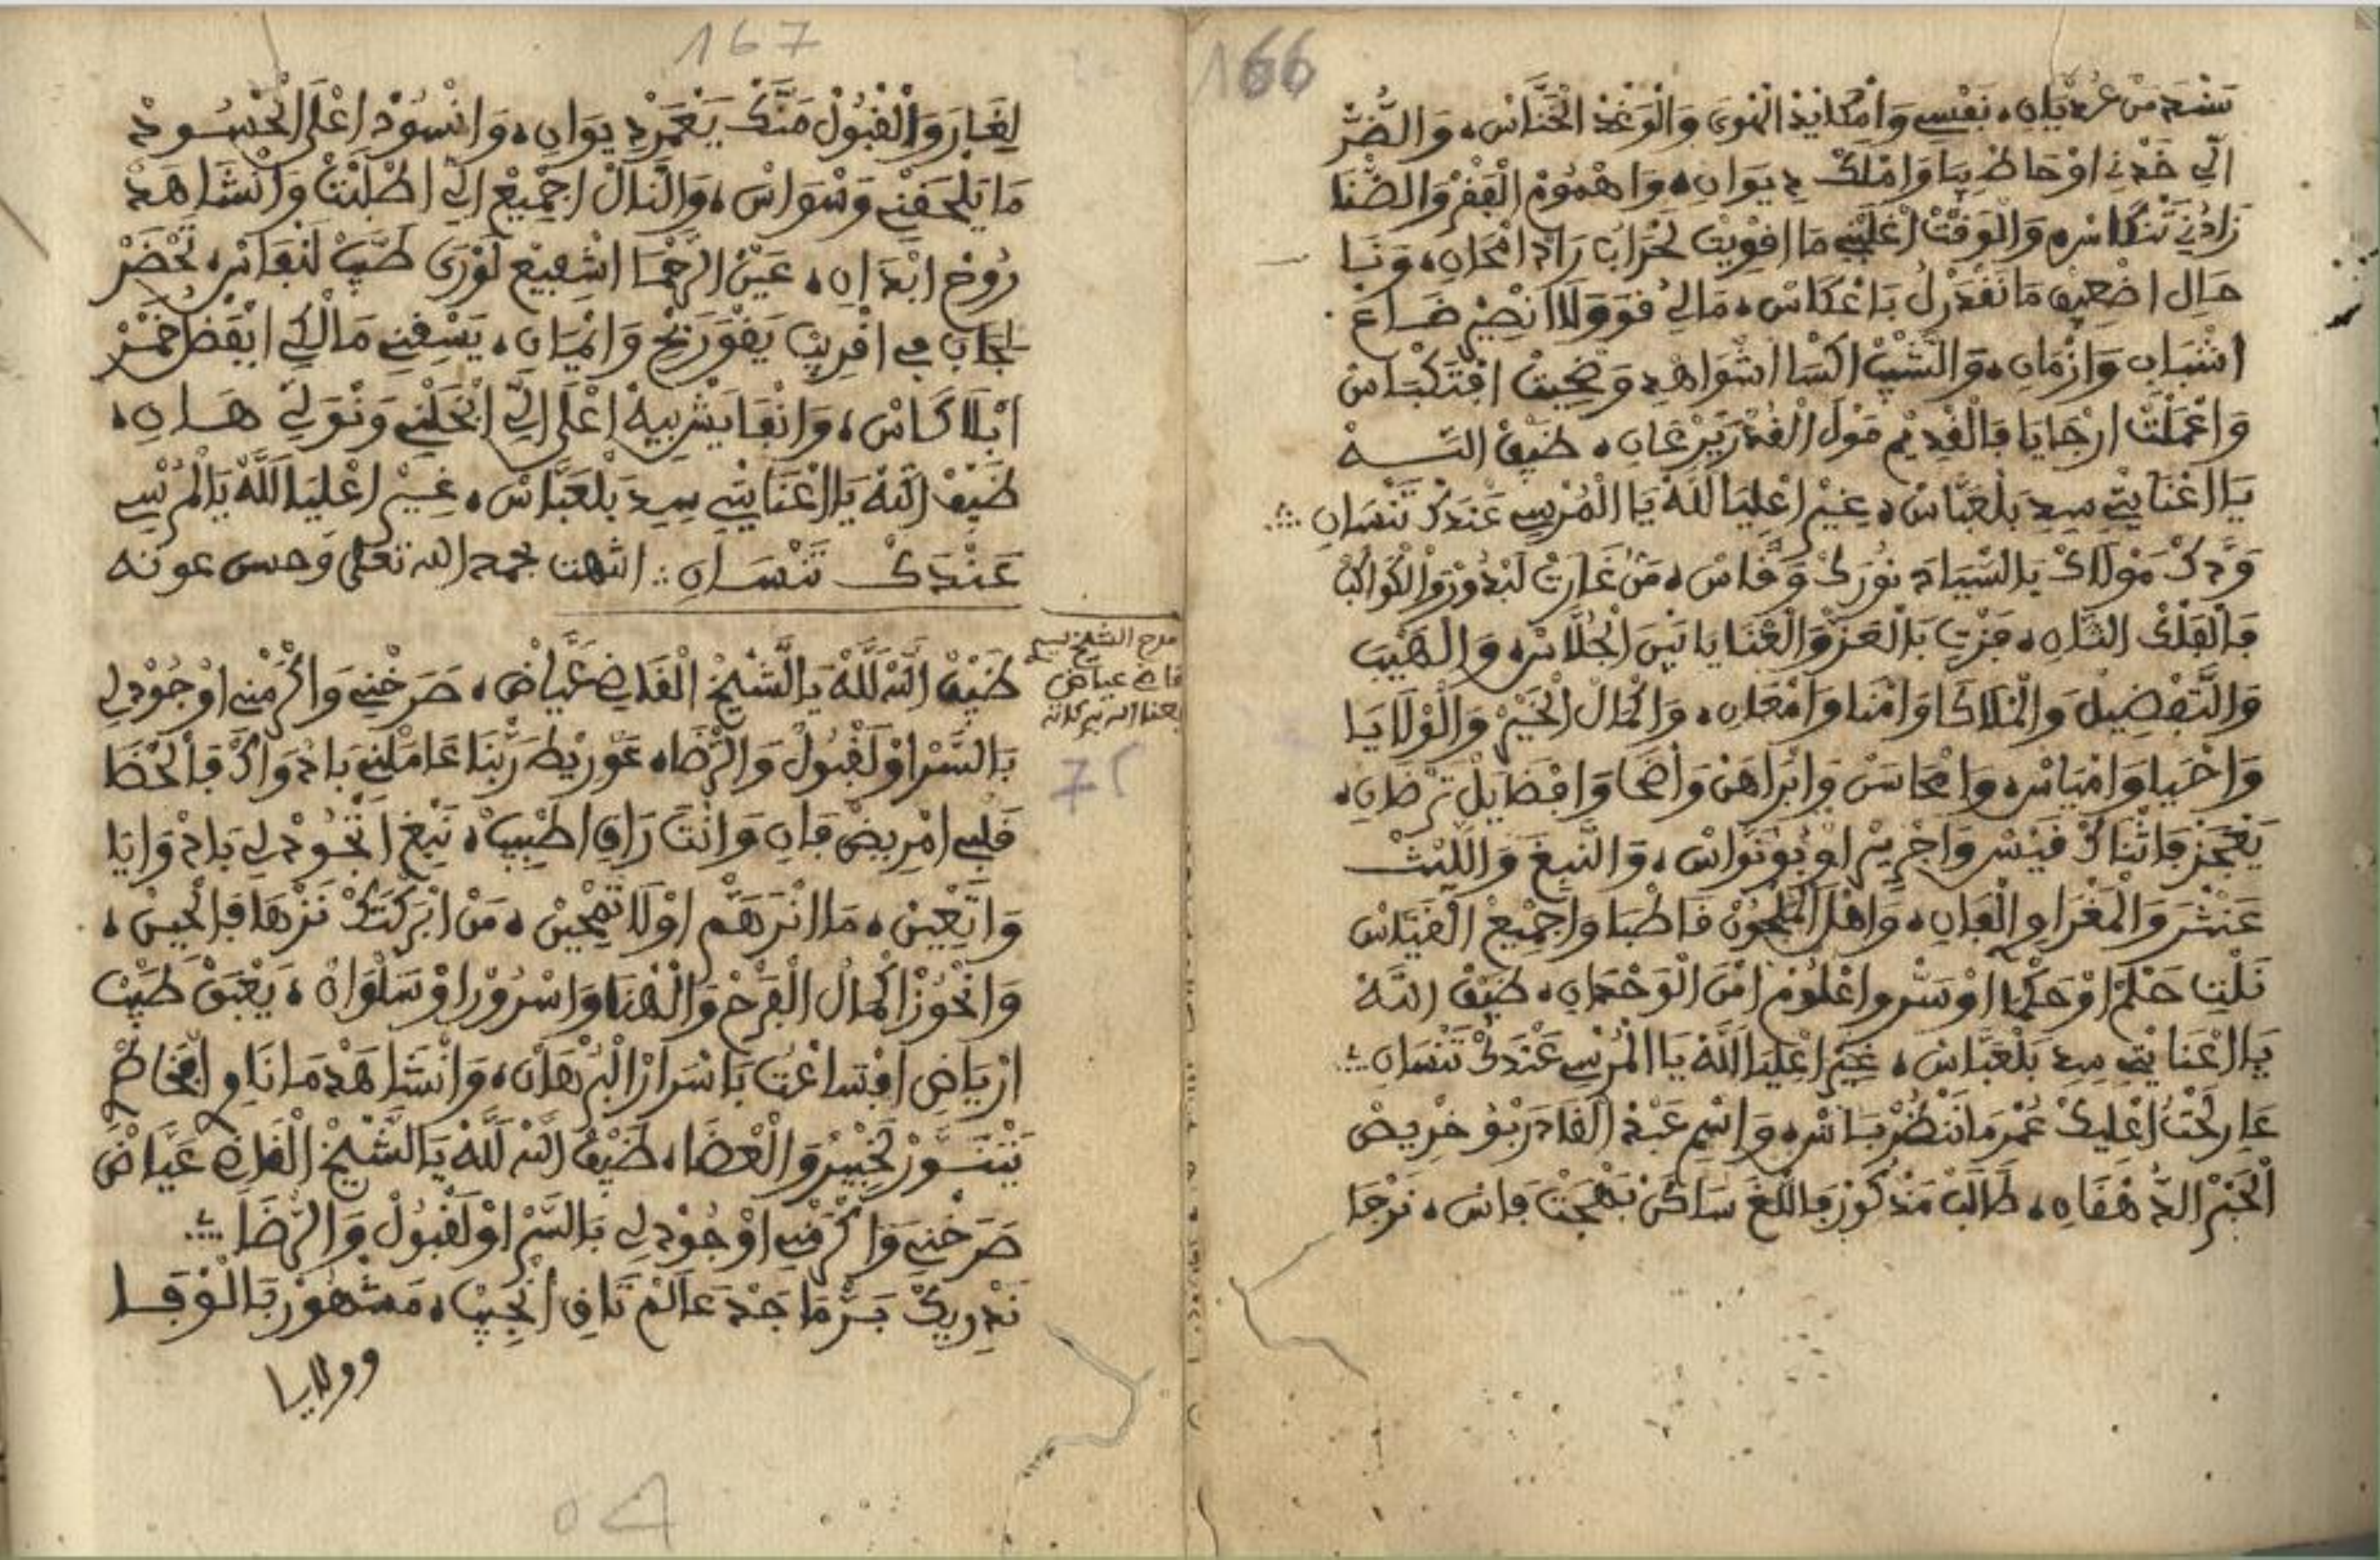 166
نشهد من عديان، نفسي وامكايد الهوى والوغد الخناس، والضر
الي خدني اوحاط بيا واملك ديوان، واهموم الفقر والضنا
زادني تنكاس، والوقت اعليا ما اقويت لحراب راد امحان، ونا
حال اضعيف ما نقدر ل باعكاس، مالي قوة ولا نضير ضاع
اشباب وازمان، والشيب اكسا اشواهد وضحيت افتكباس
واعملت ارجايا فالقديم مول القدر يرعان، ضيف الله
يا الغنايتي سيد بلعباس، غير اعليا لله يا المرسي عندك تنسان
ودك مولاك يا السياد نورك وقاس، من غارت لبدور والكواكب
فالفلك الثان، فزت بالعز والعنايا بين الجلاس، والهيب
والتفضيل والملاكا وامنا وامعان، واكمال الخير والولايا
واحيا وامياس، وامحاسن وابراهن واضحا وافضايل ترضان،
يعجز فاثناك قيس واجرير او بونواس، والنبغ والليث
عنتر والمغراوي الفان، واهل الملحون قاطبا واجميع القياس
نلت حلم اوحكما اوسر واعلوم امن الوحدان، ضيف الله
يا الغنايتي سيد بلعباس، غير اعليا الله يا المرسي عندك تنسان
عار لحت اعليك عمر ما ننضر باس، واسم عبد القادر بو خريص
الحبر الدهقان، طالب مذكور فاللغ ساكن بهجت فاس، نرجا
167
لغار والقبول منك يعمر ديوان، وانسود اعلى الحسود
ما يلحقني وسواس، والنال اجميع الي اطلبت وانشاهد
روح ابدان، عين الرحما اشفيع لورى طب لنفاس، نحضر
لجاب في اقريب يفور نج وانميان، يسقني مالكي ابفض خمر
ابلا كاس، وانقا يشربيه اعلى الي ابخلني ونولي هان،
ضيف الله يا الغنايتي سيد بلعباس، غير اعليا الله يا المرسي
عندك تنسان انتهت بحمد الله تعلى وحسن عونه
مدح الشيخ سيد
قاض عياض
نفعنا الله ببركاته
75
ضيف الله لله يا الشيخ القاضي عياض، صرخني واكرمني اوجود لي
بالسر اولقبول والرضا، عوريط ربنا عاملني بادواك فالحظا
قلبي امريض فان وانت راقي اطبيب، نبغ اتجود لي بادوايا
وانعين، ما انرهم اولا نمحين، من ابركتك نزها فالحين،
وانحوز اكمال الفرح والهنا واسرور اوسلوان، يعبق طيب
ارياض افتساعت باسرار البرهان، وانشاهد مانا وي الخاطر
نتنسور لحبير والعضا، ضيف الله لله يا الشيخ القاض عياض
صرخني واكرمني اوجود لي بالسر اولقبول والرضا
ندريك بر ماجد عالم تاقي انجيب، مشهور بالوفا
وولايا